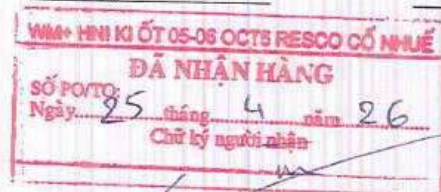 WM+ HNI KI ỐT 05-06 OCT5 RESCO CỔ NHUẾ
ĐÃ NHẬN HÀNG
SỐ PO/TO:
Ngày 25 tháng 4 năm 26
Chữ ký người nhận